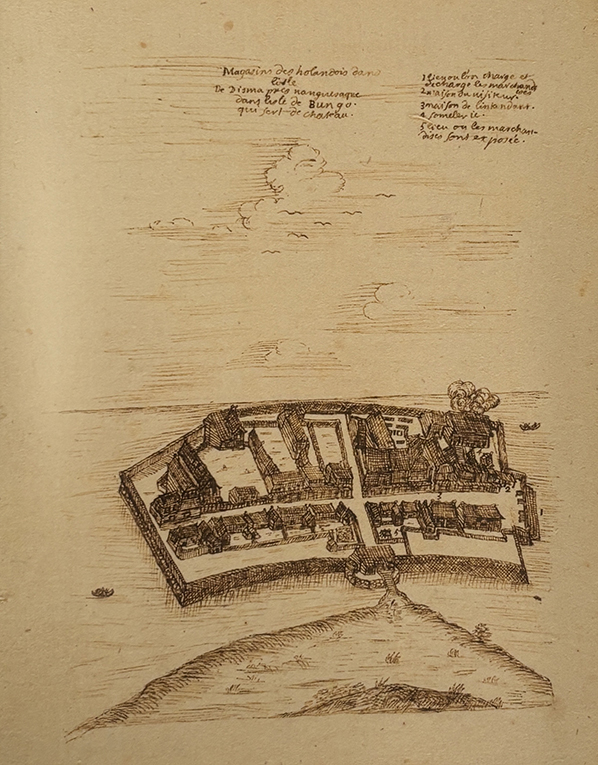 Magasins des holandois dans
lisle
de Disma pres nanguesaque
dans lisle de Bungo.
qui sert de chateau.
1 lieu ou lon charge et
decharge les marchandises
2 maison du visiteur
3 maison de lintandant.
4 somelerie.
5 lieu ou les marchan-
dises sont exposée.
3
2
1